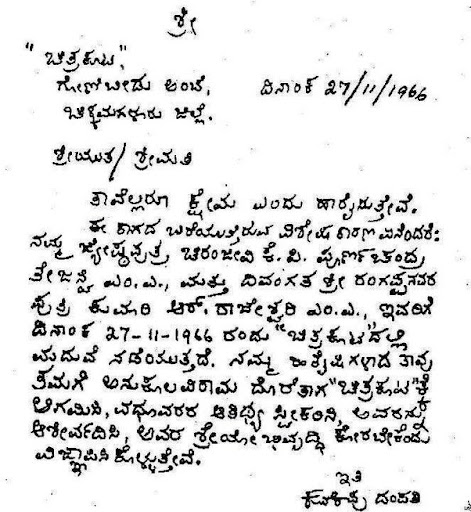 ಶ್ರೀ
"ಚಿತ್ರಕೂಟ",
ಗೋಣಿಬೀಡು ಅಂಚೆ, ದಿನಾಂಕ 27/11/1966
ಚಿಕ್ಕಮಗಳೂರು ಜಿಲ್ಲೆ.
ಶ್ರೀಯುತ/ಶ್ರೀಮತಿ
ತಾವೆಲ್ಲರೂ ಕ್ಷೇಮ ಎಂದು ಹಾರೈಸುತ್ತೇವೆ.
ಈ ಕಾಗದ ಬರೆಯುತ್ತಿರುವ ವಿಶೇಷ ಕಾರಣ ಏನೆಂದರೆ:
ನಮ್ಮ ಜ್ಯೇಷ್ಠಪುತ್ರ ಚಿರಂಜೀವಿ ಕೆ.ಪಿ. ಪೂರ್ಣಚಂದ್ರ
ತೇಜಸ್ವಿ ಎಂ.ಎ., ಮತ್ತು ದಿವಂಗತ ಶ್ರೀ ರಂಗಪ್ಪನವರ
ಪುತ್ರಿ ಕುಮಾರಿ ಆರ್. ರಾಜೇಶ್ವರಿ ಎಂ.ಎ., ಇವರಿಗೆ
ದಿನಾಂಕ 27-11-1966 ರಂದು "ಚಿತ್ರಕೂಟ"ದಲ್ಲಿ
ಮದುವೆ ನಡೆಯುತ್ತದೆ. ನಮ್ಮ ಹಿತೈಷಿಗಳಾದ ತಾವು
ತಮಗೆ ಅನುಕೂಲವಿರಾಮ ದೊರೆತಾಗ "ಚಿತ್ರಕೂಟ"ಕ್ಕೆ
ಆಗಮಿಸಿ, ವಧೂವರರ ಆತಿಥ್ಯ ಸ್ವೀಕರಿಸಿ, ಅವರನ್ನು
ಆಶೀರ್ವದಿಸಿ, ಅವರ ಶ್ರೇಯೋಭಿವೃದ್ಧಿ ಕೋರಬೇಕೆಂದು
ವಿಜ್ಞಾಪಿಸಿಕೊಳ್ಳುತ್ತೇವೆ.
ಇತಿ
ಕುವೆಂಪು ದಂಪತಿ